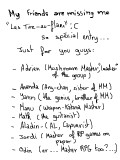 My friends are missing me
"Les Tire-au-flanc", C
So special entry...
Just for you guys:
- Adrien (Mushroom Master, leader
of the group)
- Amanda (Ang-chan, sister of MM)
- Yann (the genius, brother of MM)
- Manu (Weapon-Katana Master)
- Math (the guitarist)
- Aladin (Al, Capoeirist)
- Jordi (Master of RP games on
paper)
- Odin (er... Master RPG too?...)